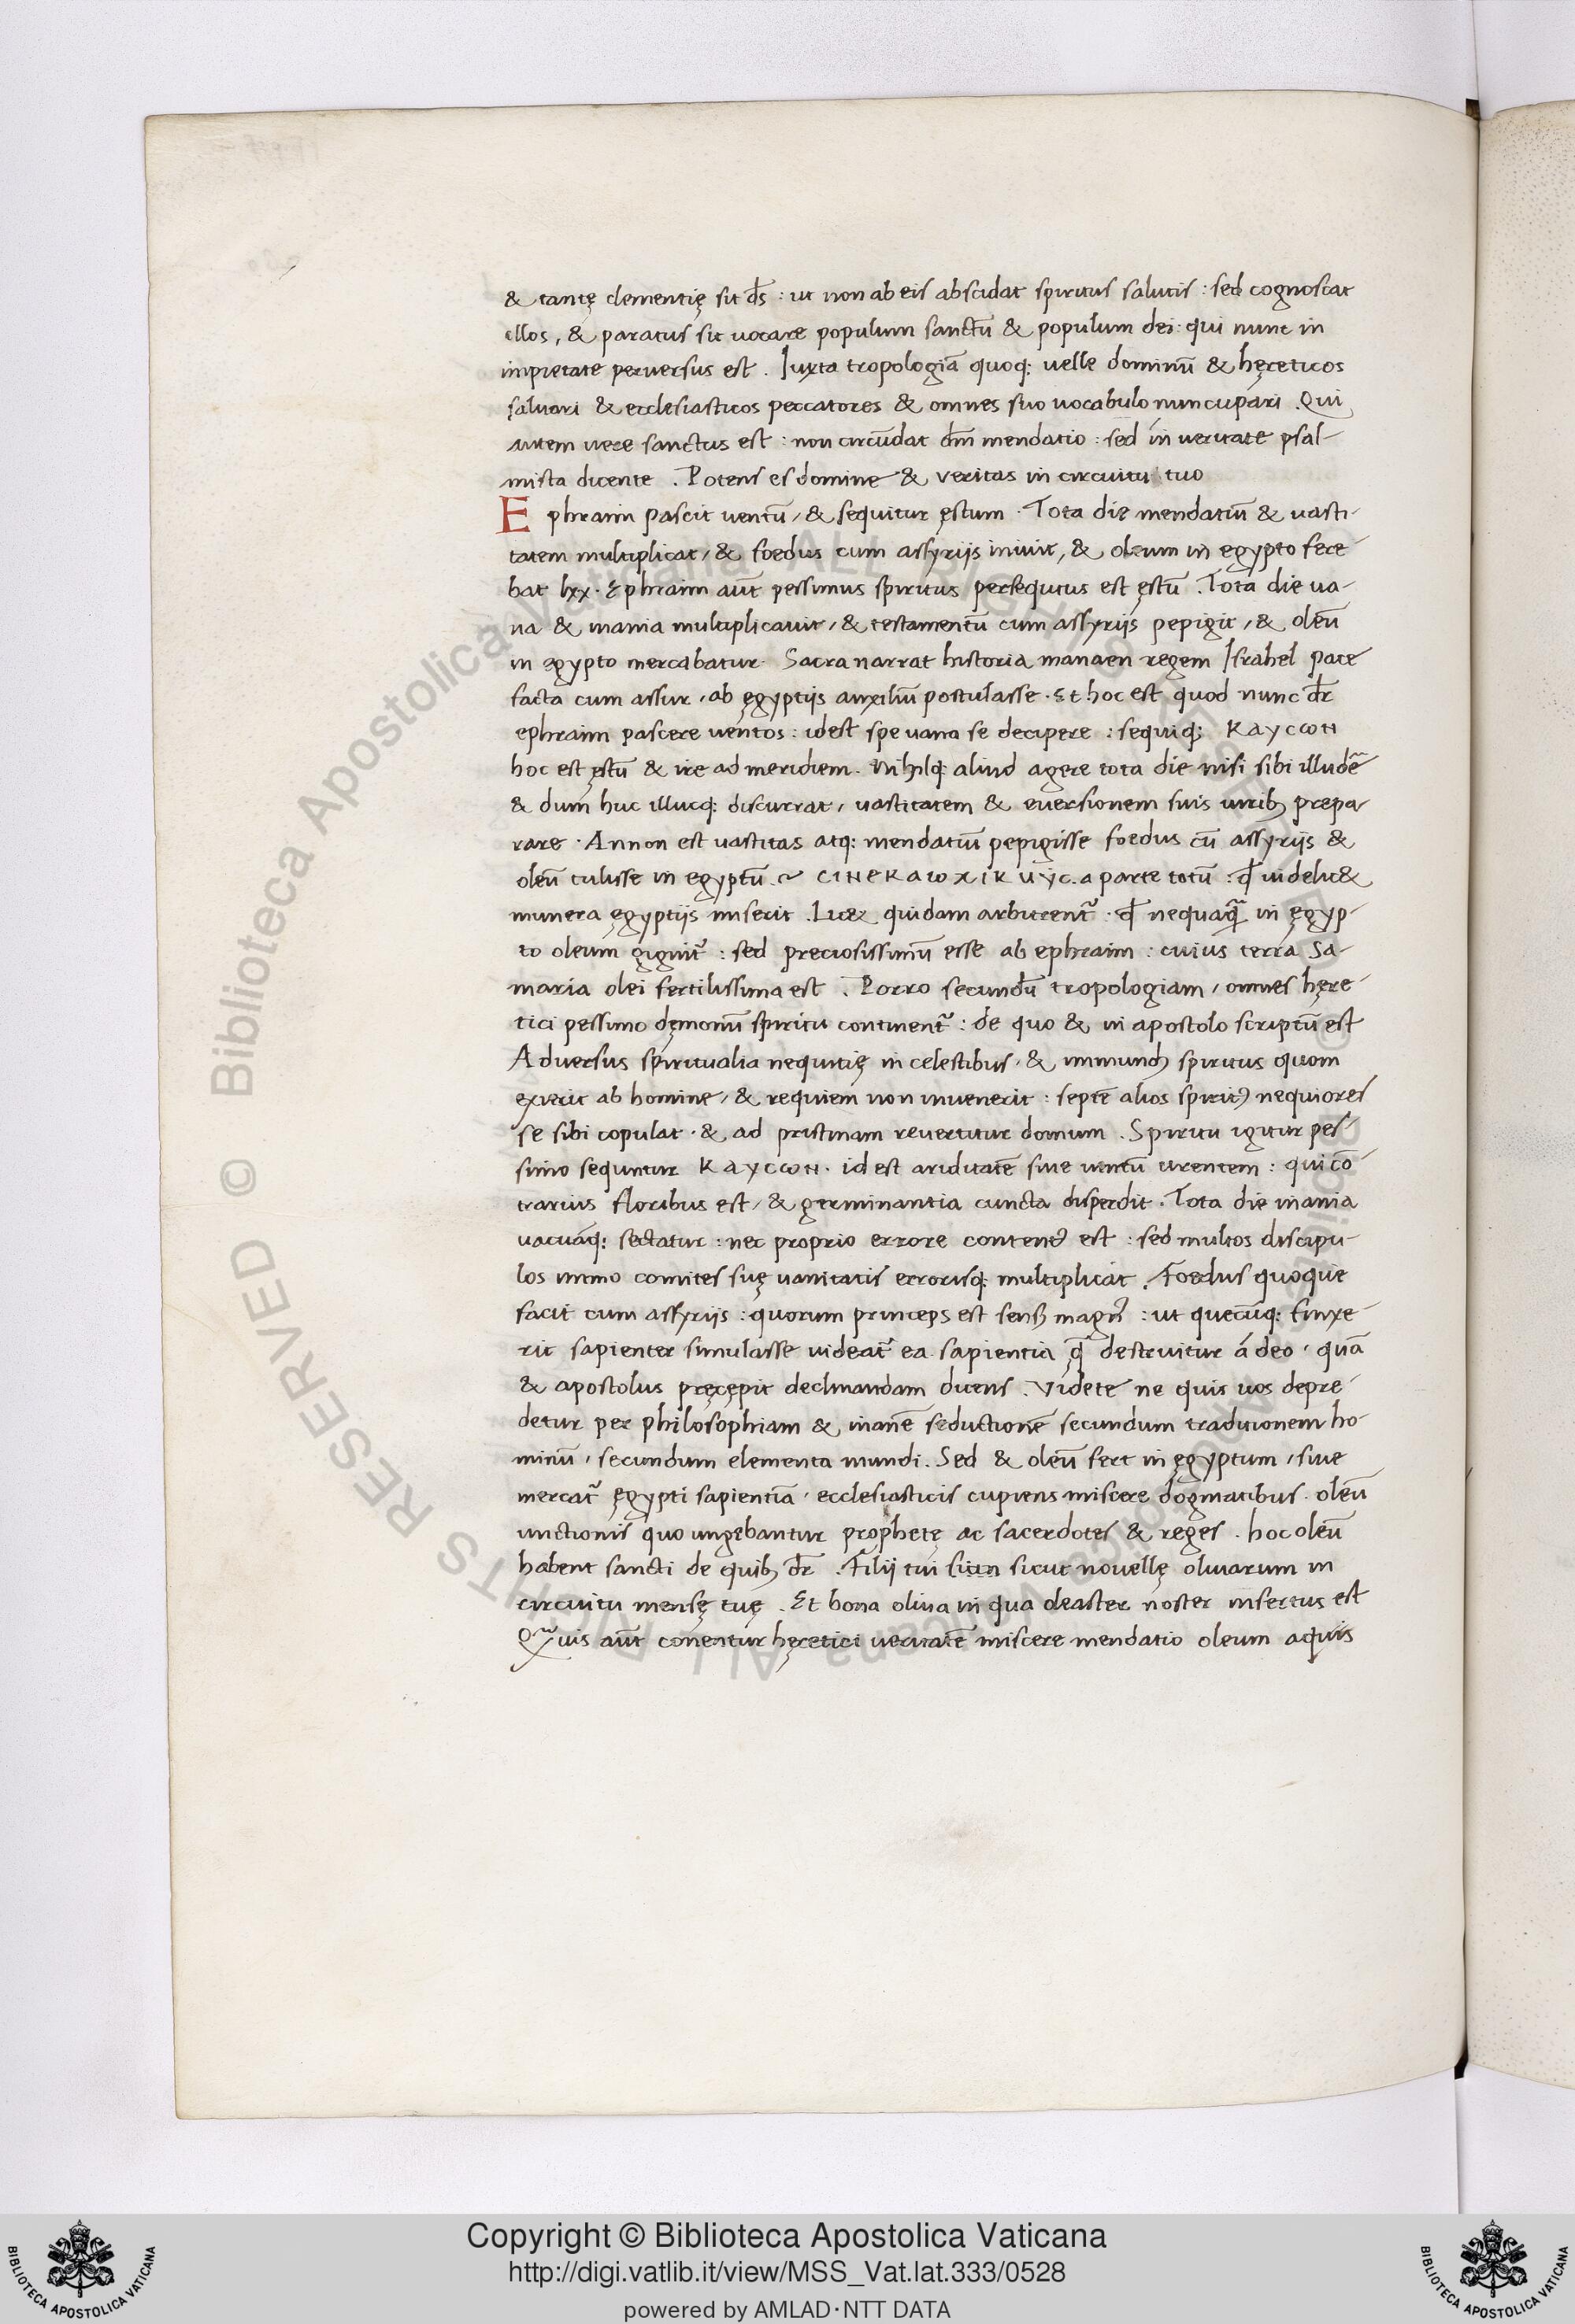 & tantę clementię sit d̅s : ut non ab eis abscidat spiritus salutis : sed cognoscat
illos, & paratus sit uocare populum sanctū & populum dei : qui nunc in
impietate perversus est . Iuxta tropologiā quoq; uelle dominū & hęreticos
saluari & ecclesiasticos peccatores & omnes suo uocabulo nuncupari . Qui
autem uere sanctus est : non circūdat dm̅ mendatio : sed in veritate psal-
mista dicente . Potens es domine & veritas in circuitu tuo
Ephraim pascit uentū, & sequitur ęstum . Tota die mendatiū & uasti-
tatem multiplicat, & foedus cum assyriis iniuit, & oleum in egypto fere-
bat lxx. Ephraim aūt pessimus spiritus persequtus est ęstū . Tota die ua-
na & inania multiplicauit, & testamentū cum assyriis pepigit, & oleū
in ęgypto mercabatur. Sacra narrat historia manaen regem Israhel pace
facta cum assur, ab ęgyptiis auxiliū postulasse . Et hoc est quod nunc dr̅
ephraim pascere uentos : idest spe uana se decipere : sequiq; καγcωn
hoc est ęstū & ire ad meridiem . Nihilq; aliud agere tota die nisi sibi illudē
& dum huc illucq; discurrat, uastitatem & euersionem suis uirib; prepa-
rare . Annon est uastitas atq; mendatiū pepigisse foedus cū assyriis &
oleū tulisse in egyptū . a parte totū : q̅ uidelic&
munera ęgyptiis miserit . Lic& quidam arbitrent᷑ . q̅ nequaq̅ in ęgyp-
to oleum gignit᷑ : sed preciosissimū esse ab ephraim : cuius terra Sa-
maria olei fertilissima est . Porro secundū tropologiam, omnes hęre-
tici pessimo dęmonū spiritu continent᷑ : de quo & in apostolo scriptū est
Adversus spiritualia nequitię in celestibus, & immundꝰ spiritus quom
exierit ab homine, & requiem non invenerit : septē alios spiritꝰ nequiores
se sibi copulat . & ad pristinam revertitur domum . Spiritu igitur pes-
simo sequntur καγcωn . id est ariditatē siue uentū urentem : qui cō-
trarius floribus est, & germinantia cuncta disperdit . Tota die inania
uacuāq; sectatur : nec proprio errore contentꝰ est : sed multos discipu-
los immo comites suę uanitatis errorisq; multiplicat . Foedus quoque
facit cum assyriis : quorum princeps est sensꝰ magnꝰ : ut quecūq; finxe-
rit sapienter simulasse uideat᷑ ea sapientia q̅ destruitur á deo, quā
& apostolus pręcępit declinandam dicens . Videte ne quis uos depre-
detur per philosophiam & inanē seductionē secundum traditionem ho-
minū, secundum elementa mundi . Sed & oleū fert in ęgyptum, siue
mercat᷑ ęgypti sapientiā, ecclesiasticis cupiens miscere dogmatibus . oleū
unctionis quo ungebantur prophetę ac sacerdotes & reges . hoc oleū
habent sancti de quib; dr̅ . Filii tui sicut nouellę oliuarum in
circuitu mensę tuę . Et bona oliua in qua oleaster noster insertus est
Qᷓuis aūt conentur hęretici veritatē miscere mendatio oleum aquis
Copyright © Biblioteca Apostolica Vaticana
http://digi.vatlib.it/view/MSS_Vat.lat.333/0528
powered by AMLAD·NTT DATA
BIBLIOTECA APOSTOLICA VATICANA
BIBLIOTECA APOSTOLICA VATICANA